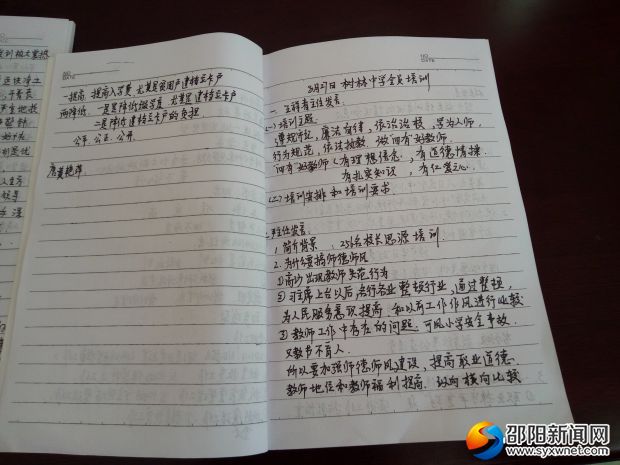 一提高：提高入学费 尤其是贫困户 建档立卡户
两降低：一是降低辍学费 尤其是 建档立卡户
二是降低 建档立卡户的负担
公平 公正 公开
NO.
DATE
3月27日 树林中学全员培训
一、主任发言:
(一) 培训主题
遵规守纪，廉洁自律，依法治校，学为人师，
行为规范，依法执教，做四有好教师。
四有好教师(有理想信念，有道德情操
有扎实知识，有仁爱之心。
(二) 培训安排和培训要求
主任发言:
1. 简介背景：256名校长思源培训
2. 为什么要搞师德师风
①高沙出现教师失范行为
②习主席上台以后，各行各业整顿行业，通过整顿，
为人民服务意识提高，和以前工作作风进行比较
③教师工作中存在的问题，可风小学安全事故，
只教书不育人。
所以要加强师德师风建设，提高职业道德
教师地位和教师福利提高，纵向横向比较
邵阳新闻网
www.syxwnet.com